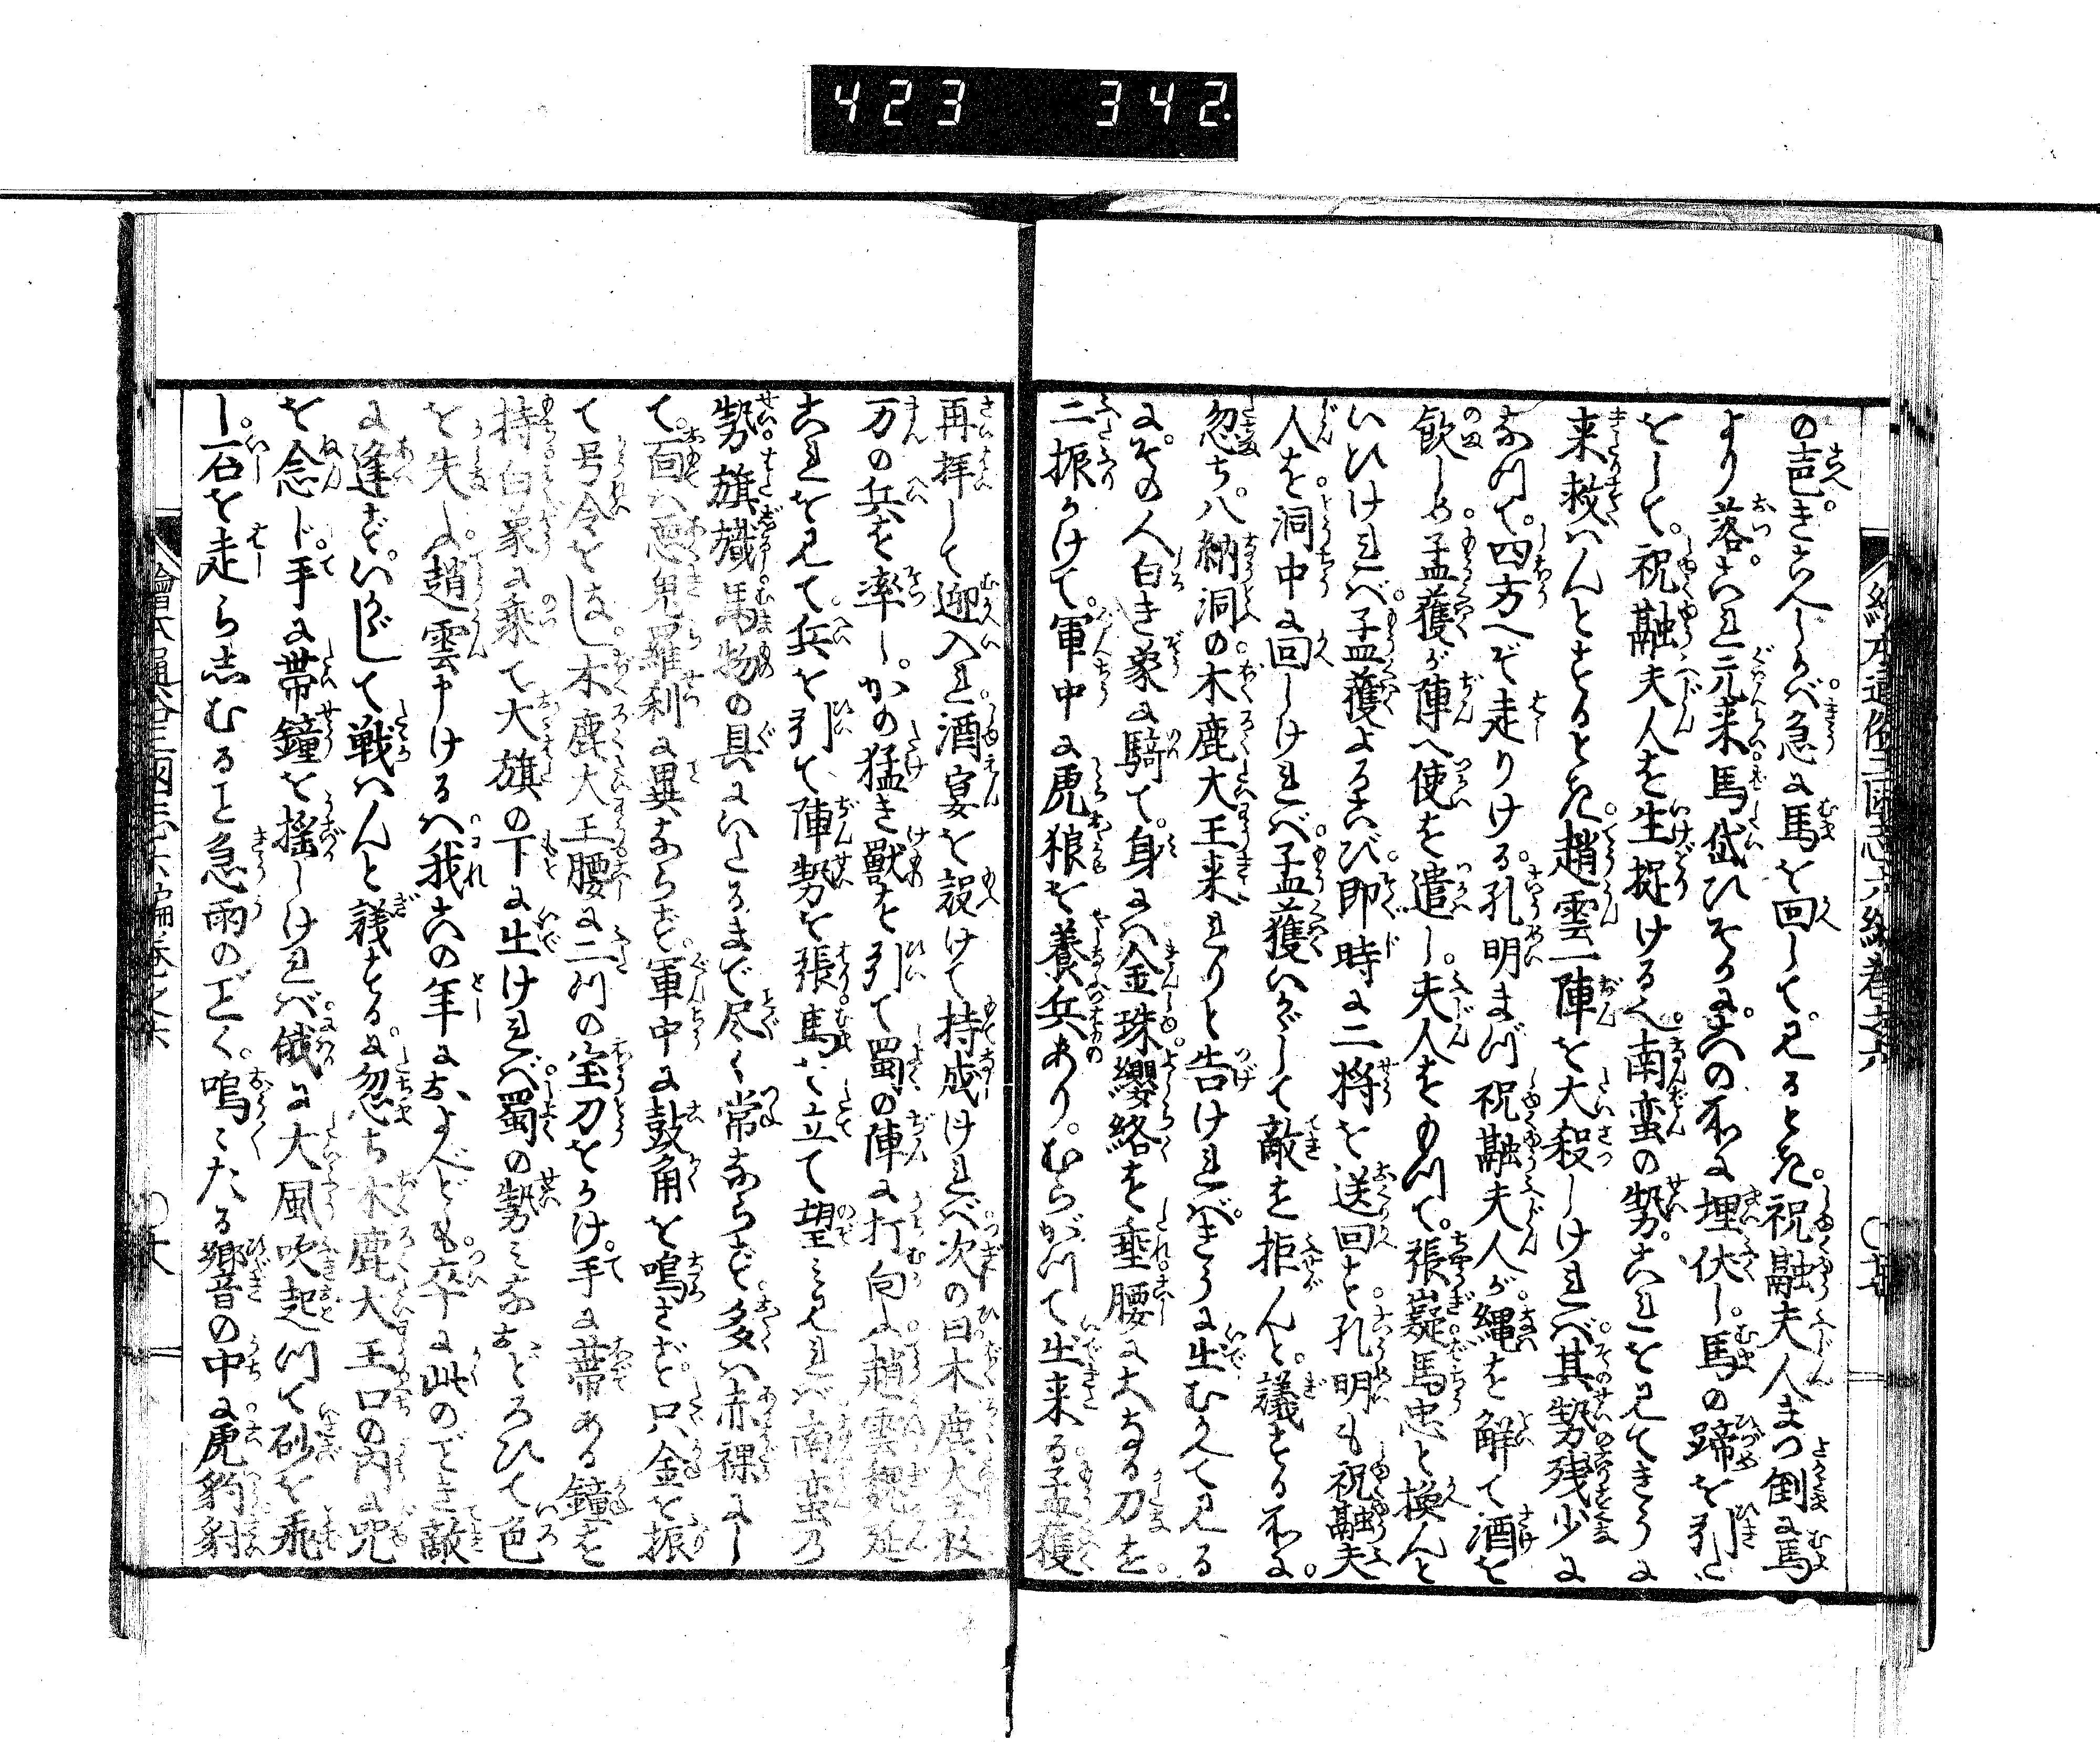 423 342.
の声。きこへしかべ急に馬を回して。見るとき。祝融夫人まつ倒に馬
より落。これ元来馬岱ひそかに。この所に埋伏し。馬の蹄を引た
をして。祝融夫人を生捉けるへ南蛮の勢。これを見てきうに
来救はんとするとき。趙雲一陣を大殺しけれべ其勢残少に
なつて。四方へぞ走りける。孔明まづ祝融夫人が縄を解て酒を
飲しめ。孟獲が陣へ使を遣し。夫人をもつて。張嶷馬忠と換んと
いひけれバ。孟獲よろこび。即時に二将を送回す。孔明も祝融夫
人を。洞中に回しけれべ。孟獲いかがして敵を拒んと。議する所に。
忽ち。八納洞の木鹿大王来れりと告けれバ。きうに出むかへて見る
に。その人白き象に騎て。身にハ金珠纓絡を垂。腰に大なる刀を。
二振かけて。軍中に虎狼を養兵あり。むらがつて出来る。孟獲
再拝して迎入れ。酒宴を設けて持成けれべ次の日。木鹿大王数
万の兵を率し。かの猛き獣を引て蜀の陣に打向ふ。趙雲魏延
これを見て。兵を引て陣勢を張。馬を立て望ミ見れバ。南蛮の
勢。旗幟。馬物の具にいたるまで尽く常ならず。多ハ赤裸にし
て。面ハ悪鬼羅刹に異ならず。軍中に鼓角を鳴さず。只金を振
て号令をなし。木鹿大王。腰に二つの宝刀をかけ。手に蔕ある鐘を
持。白象に乗て大旗の下に出けれべ。蜀の勢ミなおどろひて色
を失ふ。趙雲申けるハ我この年におよべども。卒に此のごとき敵
に逢ず。いかがして戦ハんと議する。に忽ち木鹿大王口の内に咒
を念じ。手に帯鐘を揺しけれバ。俄に大風吹起つて砂を飛
し。石を走らしむること急雨のごとく。鳴こたる響音の中に。虎豹豺